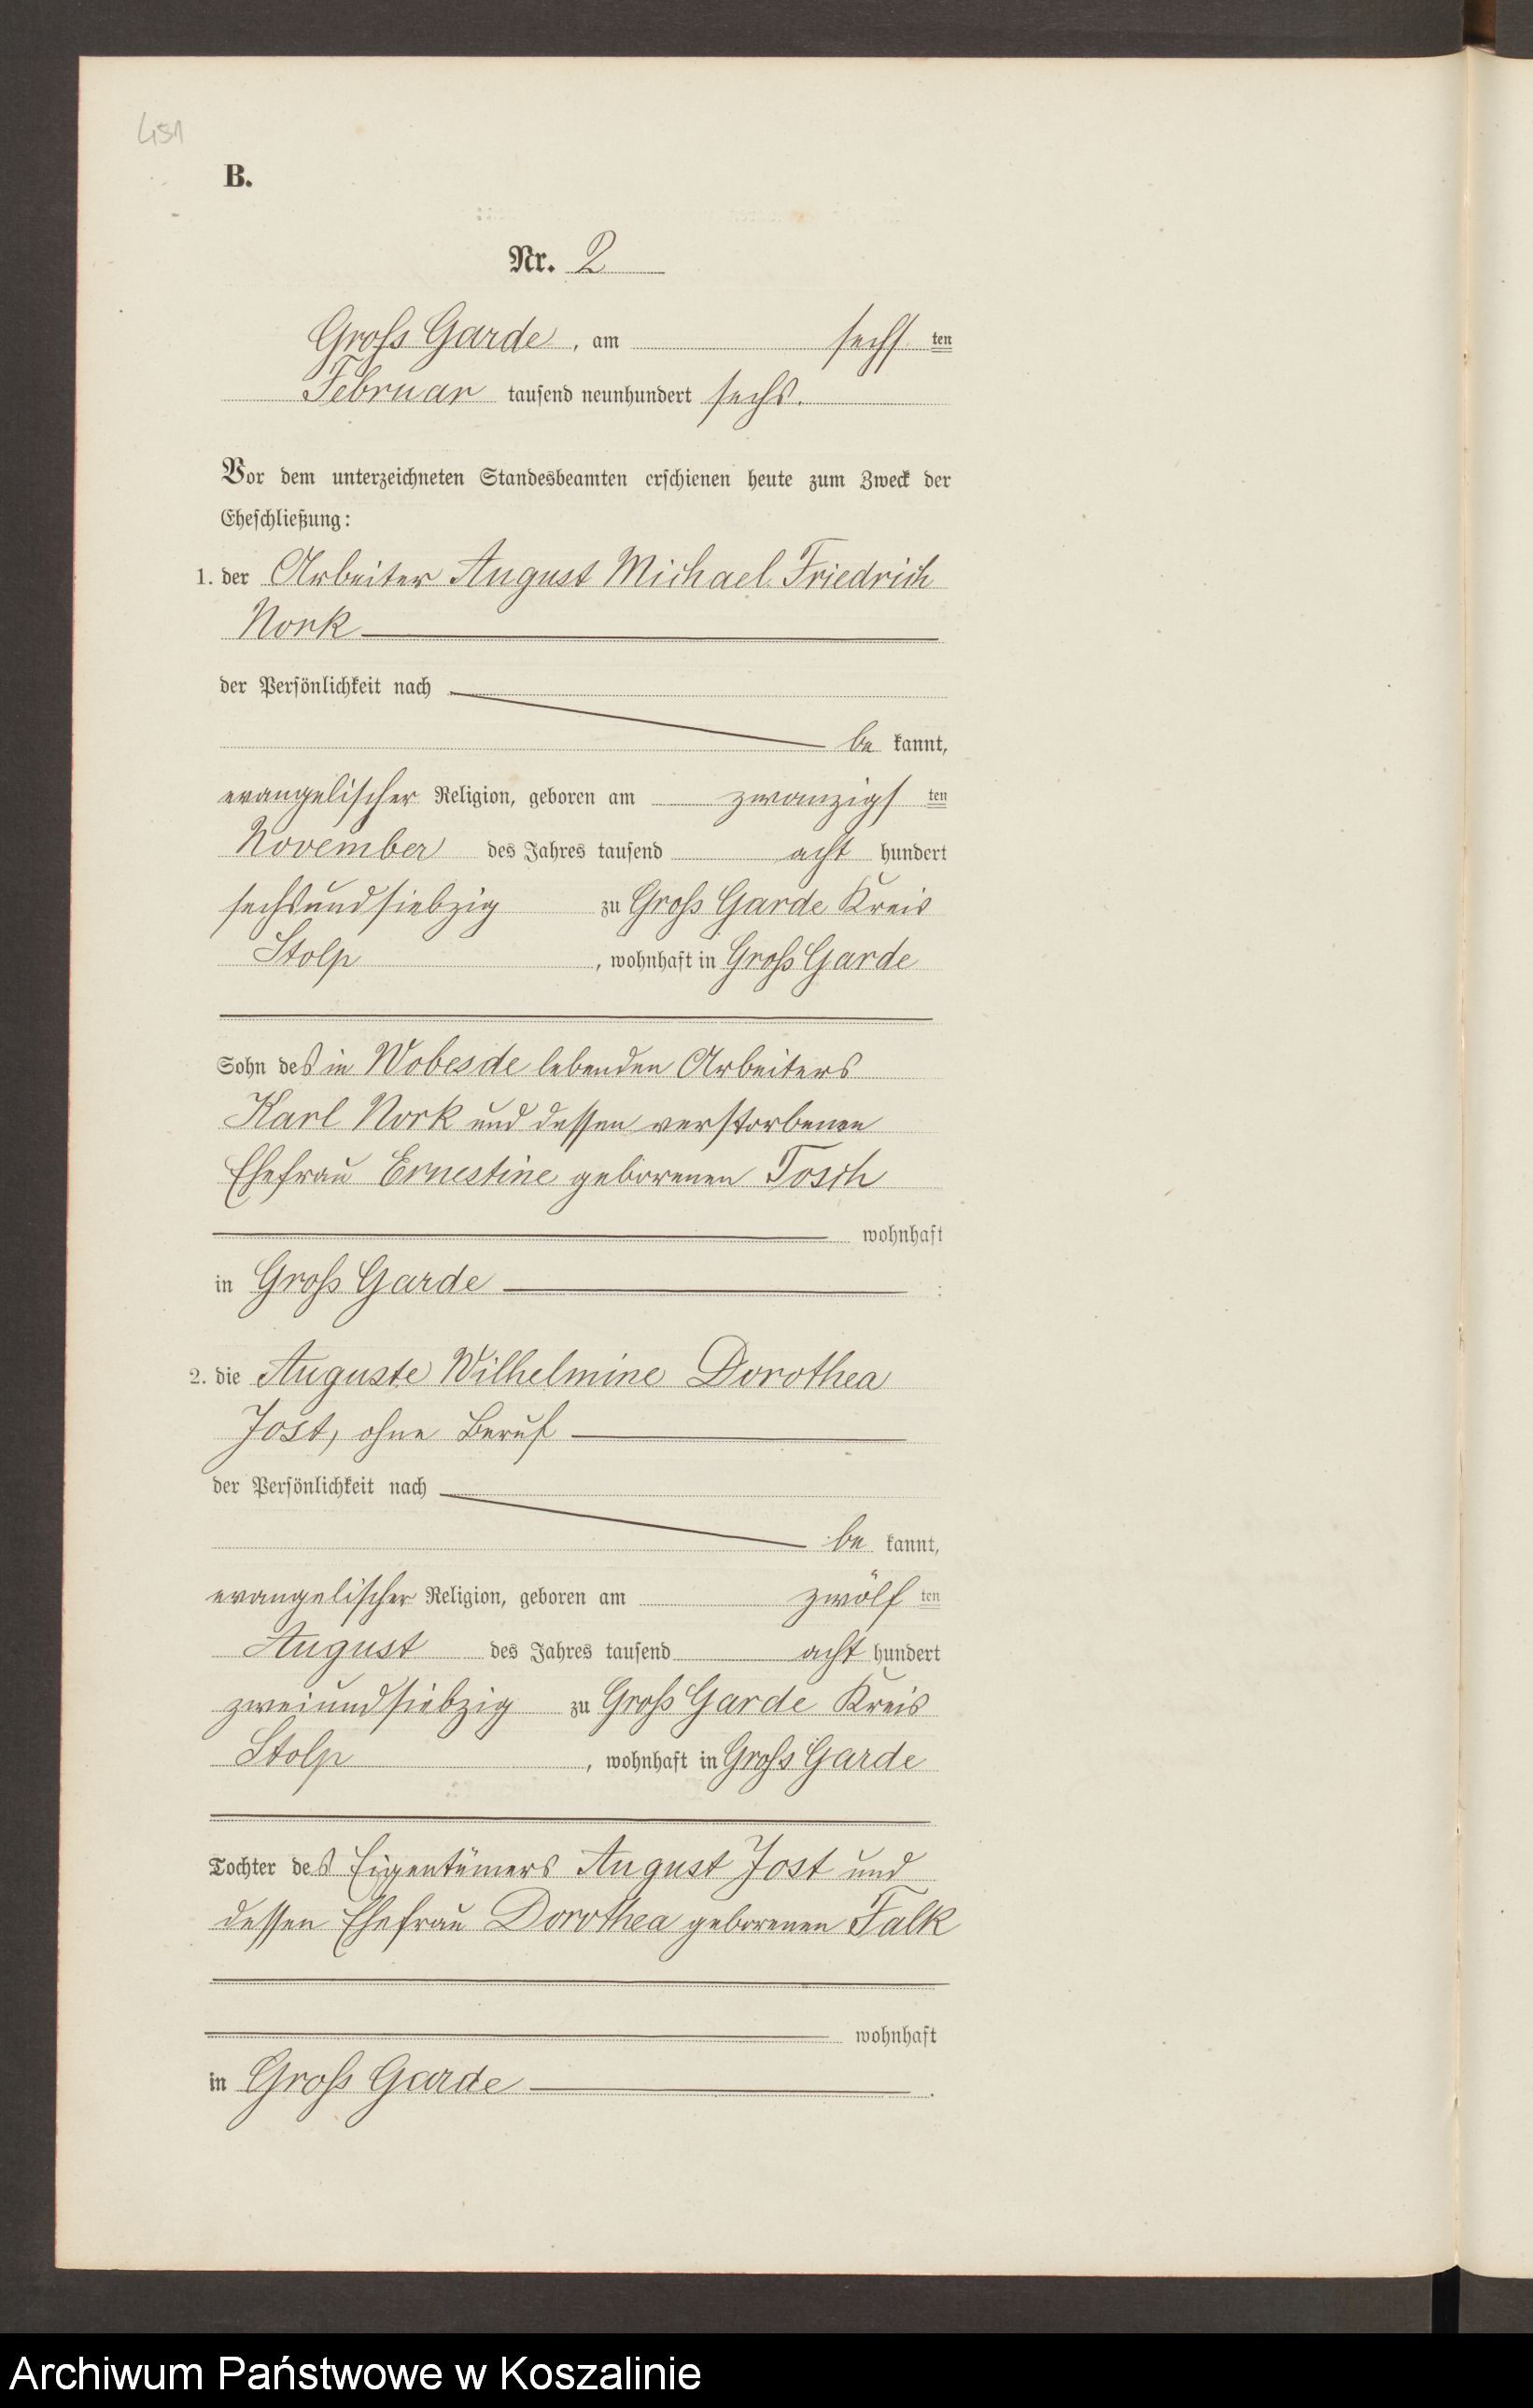 451
B.
Nr. 2
Groß Garde, am sechsten
Februar tausend neunhundert sechs.
Vor dem unterzeichneten Standesbeamten erschienen heute zum Zweck der
Eheschließung:
1. der Arbeiter August Michael Friedrich
Nork
der Persönlichkeit nach
be kannt,
evangelischer Religion, geboren am zwanzigsten
November des Jahres tausend acht hundert
sechsundsiebzig zu Groß Garde Kreis
Stolp, wohnhaft in Groß Garde
Sohn des in Wobesde lebenden Arbeiters
Karl Nork und dessen verstorbenen
Ehefrau Ernestine geborenen Tosch
wohnhaft
in Groß Garde
2. die Auguste Wilhelmine Dorothea
Jost, ohne Beruf
der Persönlichkeit nach
be kannt,
evangelischer Religion, geboren am zwölften
August des Jahres tausend acht hundert
zweiundsiebzig zu Groß Garde Kreis
Stolp, wohnhaft in Groß Garde
Tochter des Eigentümers August Jost und
dessen Ehefrau Dorothea geborenen Falk
wohnhaft
in Groß Garde.
Archiwum Państwowe w Koszalinie